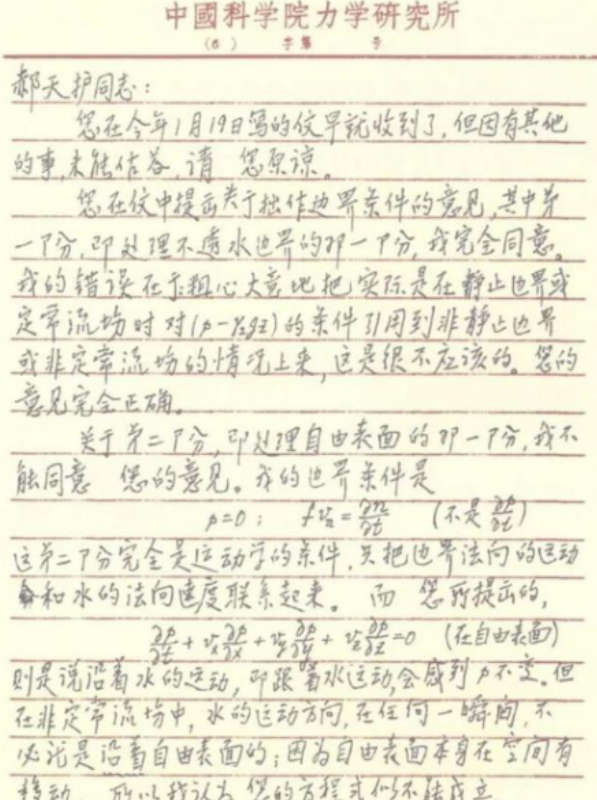 中國科学院力学研究所
(6) 字第 号
郝天护同志：
您在今年1月19日写的信早就收到了，但因有其他
的事，未能作答，请 您原谅。
您在信中提出关于拙作边界条件的意见，其中第
一下分，即处理不透水边界的那一下分，我完全同意。
我的错误在于粗心大意地把实际是在静止边界或
定常流场时对(p-γ₂gz)的条件引用到非静止边界
或非定常流场的情况上来，这是很不应该的。您的
意见完全正确。
关于第二下分，即处理自由表面的那一下分，我不
能同意 您的意见。我的边界条件是
p=0； fvₙ=∂n/∂t （不是∂p/∂t）
这第二下分完全是运动学的条件，只把边界法向的运动
和水的法向速度联系起来。而 您所提出的，
∂p/∂t+vₓ∂p/∂x+vᵧ∂p/∂y+v_z∂p/∂z=0 （在自由表面）
则是说沿着水的运动，即跟着水运动，会感到p不变。但
在非定常流场中，水的运动方向，在任何一瞬间，不
必讬是沿着自由表面的；因为自由表面本身在空间有
移动。所以我认为 您的方程式似不能成立